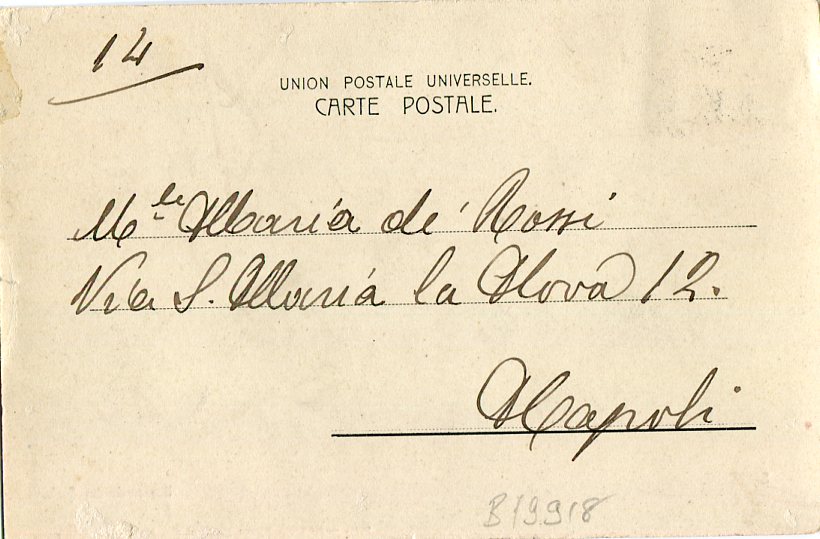 14
UNION POSTALE UNIVERSELLE.
CARTE POSTALE.
Mlle Maria de' Rossi
Via S. Maria la Nova 12.
Napoli
B/9918